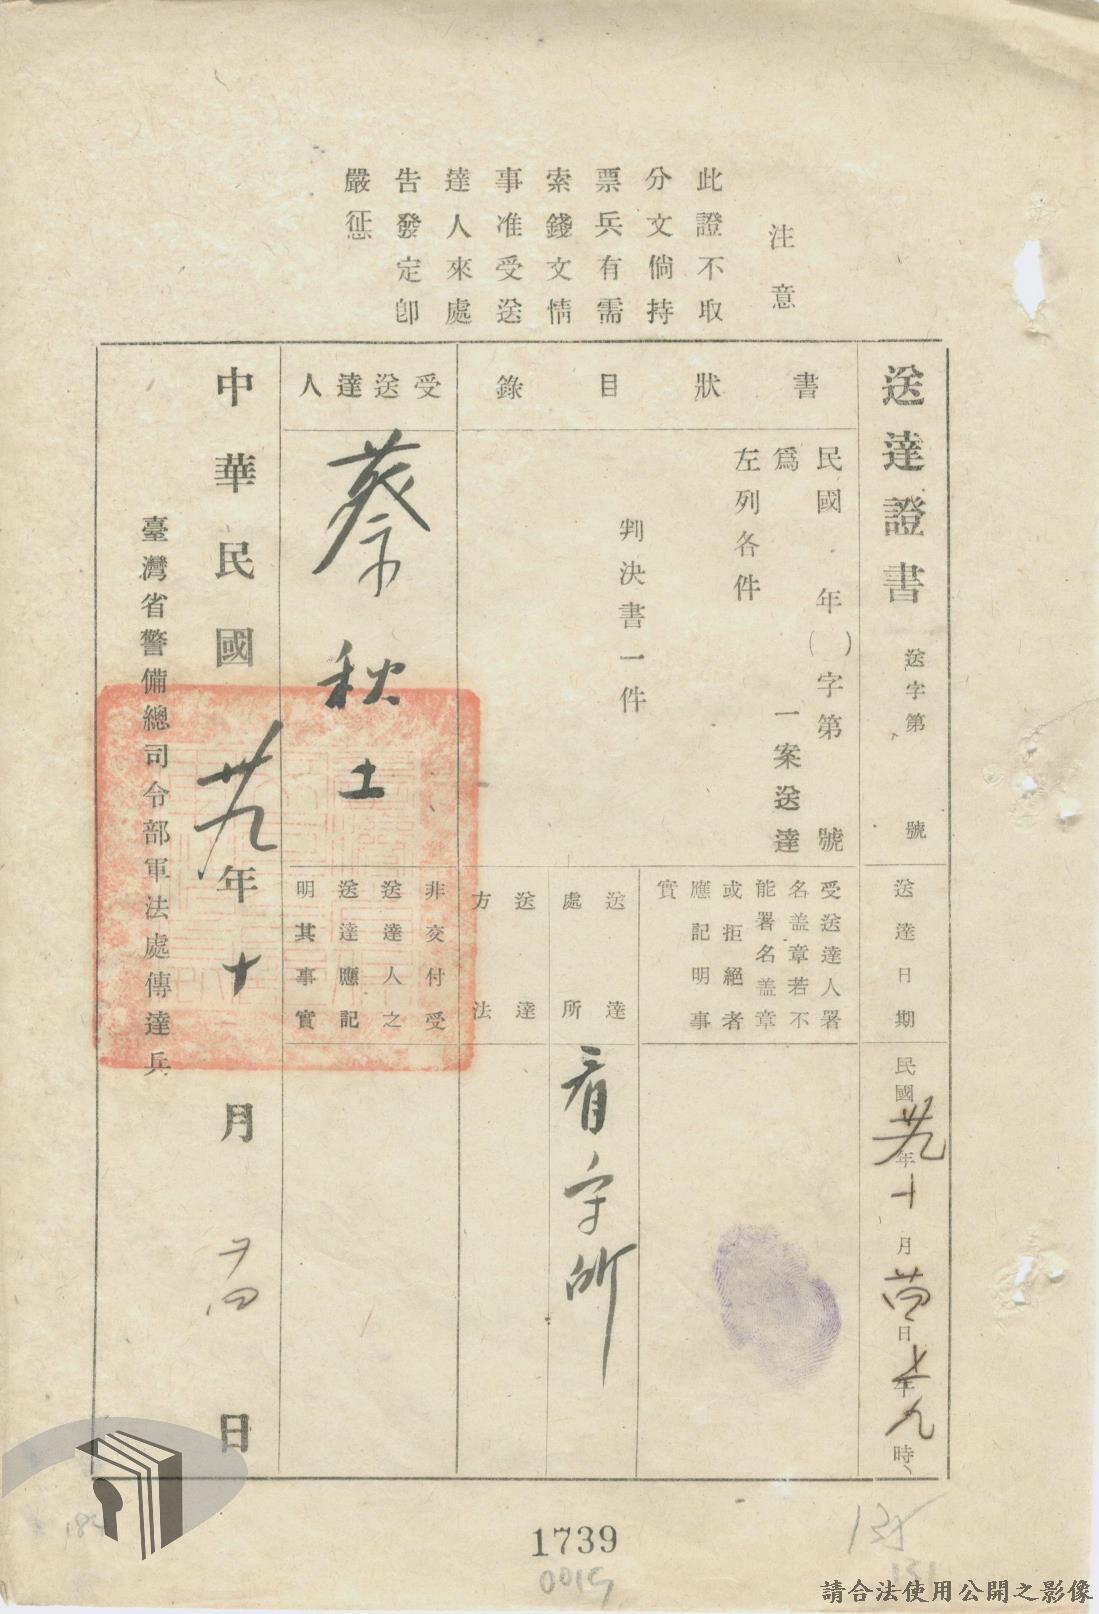 注意
此證不取
分文倘持
票兵有需
索錢文情
事准受送
達人來處
告發定即
嚴懲
送達證書
送字第 號
送達日期
民國卅九年十月廿四日上午九時
書狀目錄
民國 年( )字第 號
為 一案送達
左列各件
判決書一件
受送達人署
名盖章若不
能署名盖章
或拒絕者
應記明事
實
送達處所
看守所
送達方法
受送達人
蔡秋土
非交付受
送達人之
送達應記
明其事實
中華民國卅九年十月廿四日
臺灣省警備總司令部軍法處傳達兵
1739
0019
135
131
請合法使用公開之影像